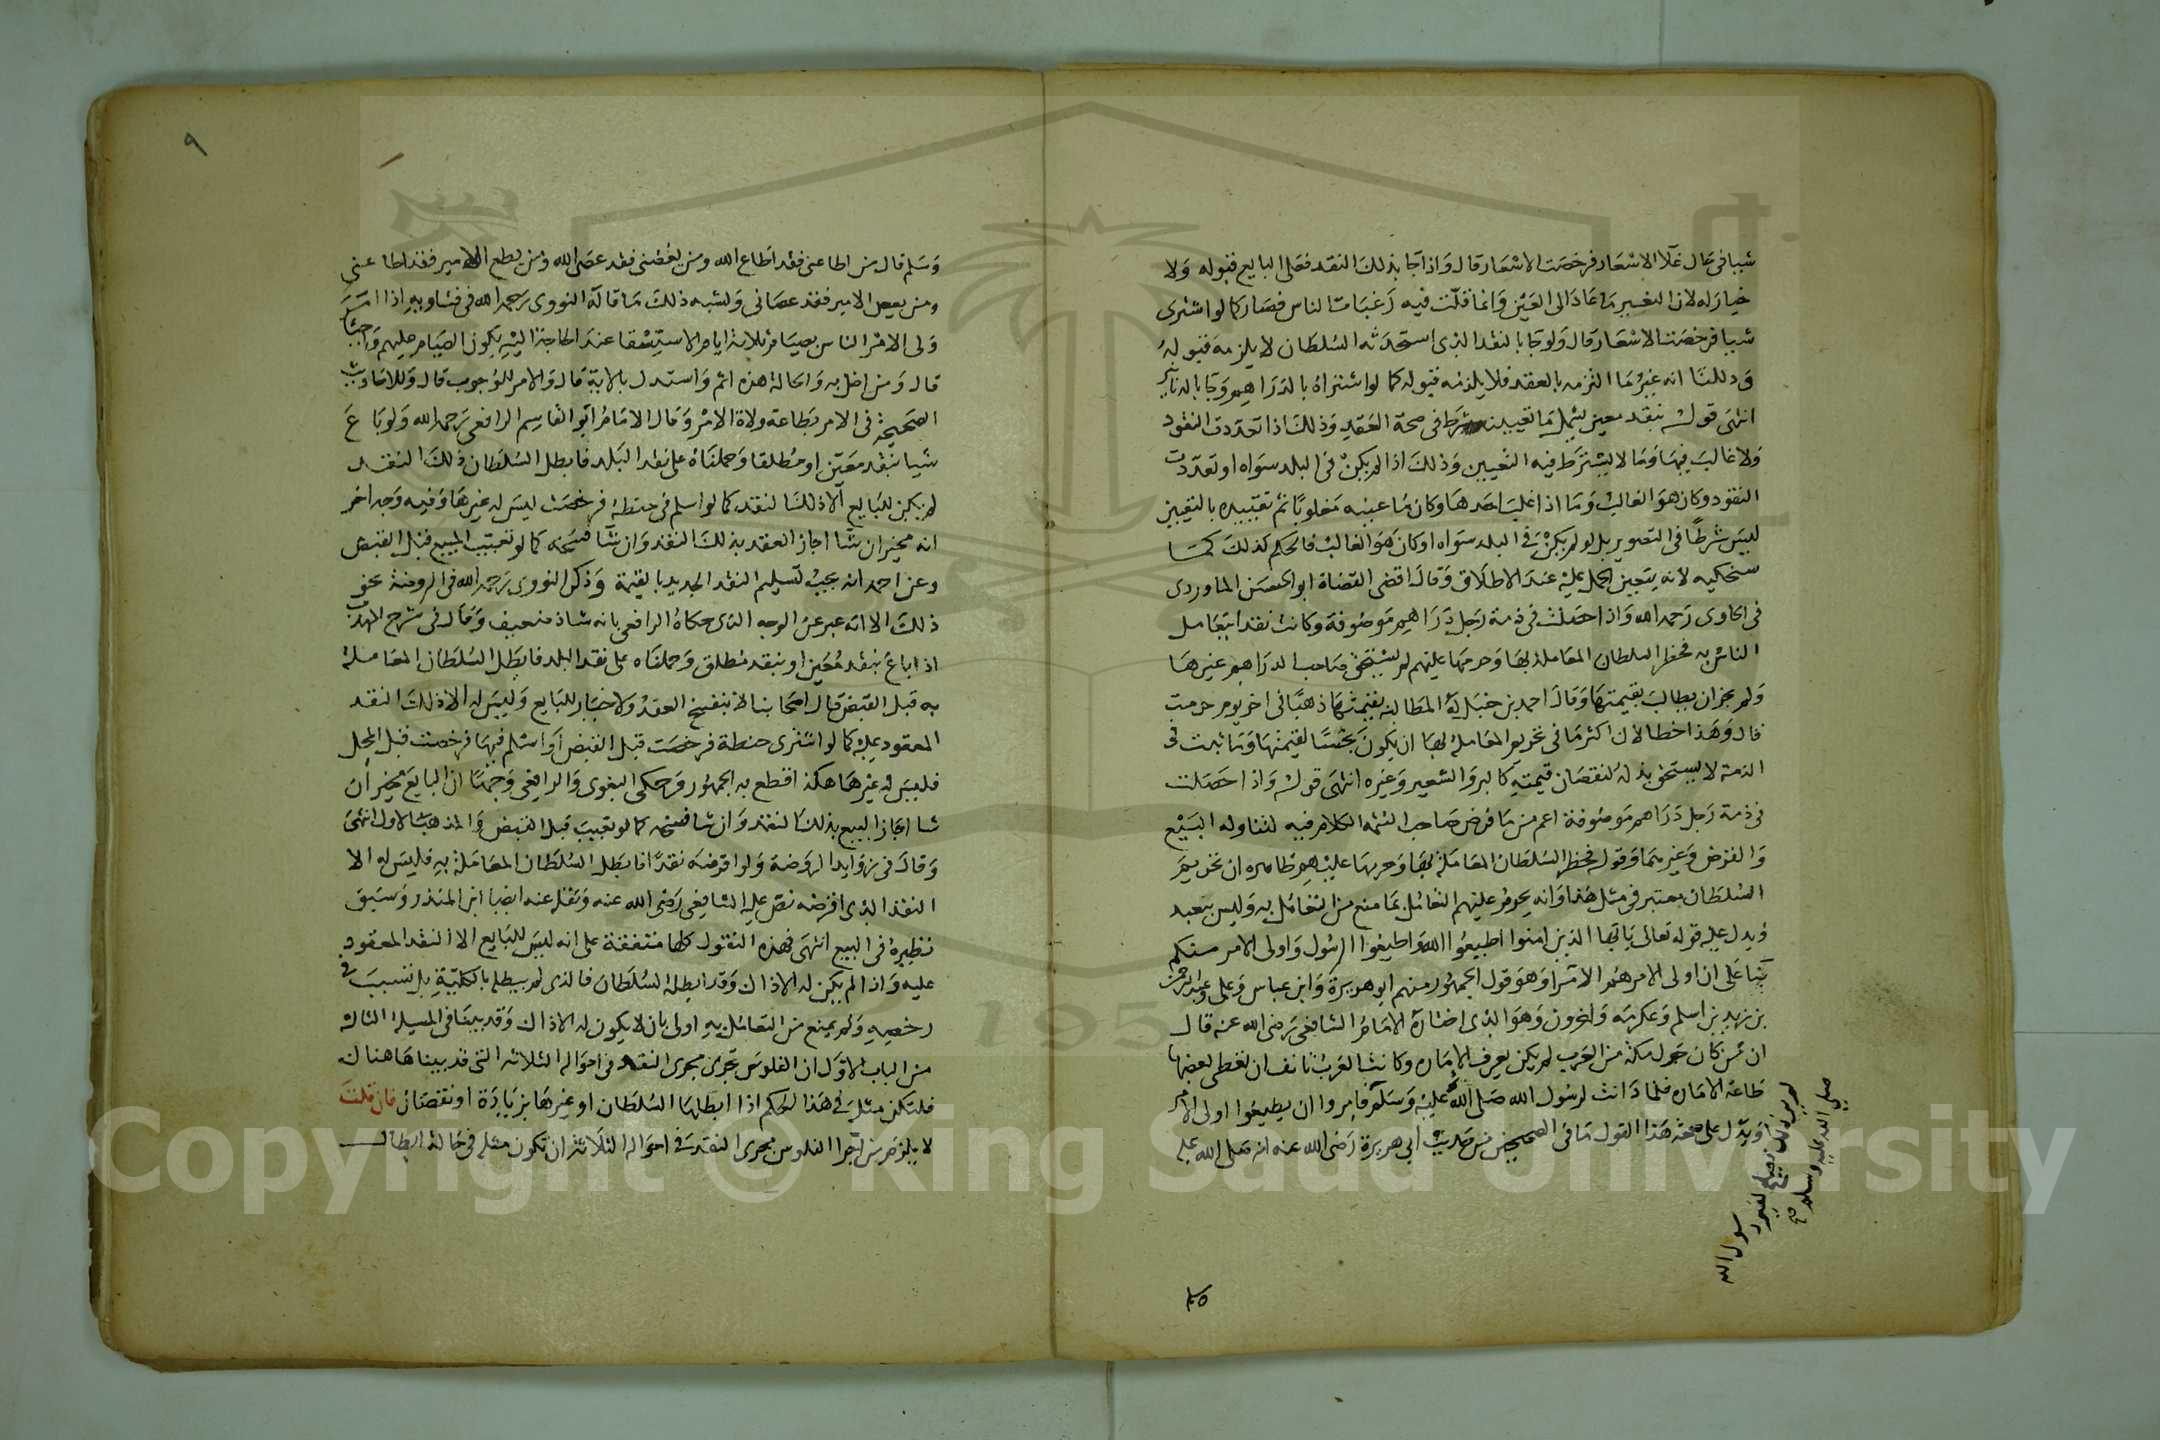 شيا في حال غلا الاسعار فرخصت الاسعار قال واذا جا بذلك النقد فعلى البايع قبوله ولا
خيار له لان التغيير ما عاد الى العين وانما قلت فيه رغبات الناس فصار كما لو اشترى
شيا فرخصت الاسعار قال ولو جا بالنقد الذى استحدثه السلطان لا يلزمه قبوله
ودليلنا انه غير ما التزمه بالعقد فلا يلزمه قبوله كما لو اشتراه بالدراهم وجا بالدنانير
انتهى قوله بنقد معين يشمل ما تعيينه شرط في صحة العقد وذلك اذا تعددت النقود
ولا غالب فيها وما لا يشترط فيه التعيين وذلك اذا لم يكن في البلد سواه او تعددت
النقود وكان هو الغالب وما اذا غلب احدها وكان ما عينه مغلوبا ثم تقييده بالتعيين
ليس شرطا في التصوير بل لو لم يكن في البلد سواه او كان هو الغالب فالحكم كذلك كما
سنحكيه لانه يتجين الحمل عليه عند الاطلاق وقال اقضى القضاة ابو الحسن الماوردى
في الحاوى رحمه الله واذا حصلت في ذمة رجل دراهم موصوفة وكانت نقدا يتعامل
الناس به فحظر السلطان المعاملة بها وحرمها عليهم لم يستحق صاحب الدراهم غيرها
ولم يجز ان يطالب بقيمتها وقال احمد بن حنبل له المطالبة بقيمتها ذهبا في اخر يوم حرمت
قال وهذا خطا لان اكثر ما في تحريم المعاملة بها ان يكون بخسا لقيمتها وما ثبت في
الذمة لا يستحق بدله لنقصان قيمته كالبر والشعير وغيره انتهى قوله واذا حصلت
في ذمة رجل دراهم موصوفة اعم من ما فرض صاحب التتمة الكلام فيه لتناوله البيع
والقرض وغيرهما وقوله فحظر السلطان المعاملة بها وحرمها عليهم ظاهره ان تحريم
السلطان معتبر في مثل هذا وانه يحرم عليهم التعامل بما منع من التعامل به وليس ببعيد
ويدل عليه قوله تعالى يا ايها الذين امنوا اطيعوا الله واطيعوا الرسول واولى الامر منكم
بنا على ان اولى الامر هم الامرا وهو قول الجمهور منهم ابو هريرة وابن عباس وعلى وعبد الرحمن
بن زيد بن اسلم وعكرمة واخرون وهو الذى اختاره الامام الشافعي رضى الله عنه قال
ان من كان حول مكة من العرب لم يكن يعرف الامارة وكانت العرب تانف ان تعطى بعضها
طاعة الامارة فلما دانت لرسول الله صلى الله عليه وسلم فامروا ان يطيعوا اولى الامر
ويدل على صحة هذا القول ما في الصحيحين من حديث ابي هريرة رضى الله عنه انه صلى الله عليه
لغير رسول الله
صلى الله عليه وسلم صح
وسلم قال من اطاعني فقد اطاع الله ومن يعصني فقد عصى الله ومن يطع الامير فقد اطاعني
ومن يعص الامير فقد عصاني ويشبه ذلك ما قاله النووى رحمه الله في فتاويه اذا امر
ولى الامر الناس بصيام ثلاثة ايام للاستسقا عند الحاجة اليه يكون الصيام عليهم واجبا
قال ومن اخل به والحالة هذه اثم واستدل بالاية قال والامر للوجوب قال وللاحاديث
الصحيحة في الامر بطاعة ولاة الامر وقال الامام ابو القاسم الرافعى رحمه الله ولو باع
شيا بنقد معين او مطلقا وحملناه على نقد البلد فابطل السلطان ذلك النقد
لم يكن للبايع الا ذلك النقد كما لو اسلم في حنطة فرخصت ليس له غيرها وفيه وجه اخر
انه مخير ان شا اجاز العقد بذلك النقد وان شا فسخه كما لو تعيب المبيع قبل القبض
وعن احمد انه يجب تسليم النقد الجديد بالقيمة وذكر النووى رحمه الله في الروضة نحو
ذلك الا انه عبر عن الوجه الذى حكاه الرافعى بانه شاذ ضعيف وقال في شرح المهذب
اذا باع بنقد معين او بنقد مطلق وحملناه على نقد البلد فابطل السلطان المعاملة
به قبل القبض قال اصحابنا لا ينفسخ العقد ولا خيار للبايع وليس له الا ذلك النقد
المعقود عليه كما لو اشترى حنطة فرخصت قبل القبض او اسلم فيها فرخصت قبل المحل
فليس له غيرها هكذا قطع به الجمهور وحكى البغوى والرافعى وجها ان البايع مخير ان
شا اجاز البيع بذلك النقد وان شا فسخه كما لو تعيب قبل القبض والمذهب الاول انتهى
وقال في زوايد الروضة ولو اقرضه نقدا فابطل السلطان المعاملة به فليس له الا
النقد الذى اقرضه نص عليه الشافعى رضى الله عنه ونقله عنه ايضا ابن المنذر وسبق
نظيره في البيع انتهى فهذه النقول كلها متفقة على انه ليس للبايع الا النقد المعقود
عليه واذا لم يكن له الا ذاك وقد ابطله السلطان فالذى لم يبطله بالكلية بل تسبب في
رخصه ولم يمنع من التعامل به اولى بان لا يكون له الا ذاك وقد بينا في المسيلة الثالثة
من الباب الاول ان الفلوس تجرى مجرى النقد في احواله الثلاثة التى قد بيناها هناك
فلتكن مثله في هذا الحكم اذا ابطلها السلطان او غيرها بزيادة او نقصان فان قلت
لا يلزم من اجرا الفلوس مجرى النقد في احواله الثلاثة ان تكون مثله في حالة ابطال
٩